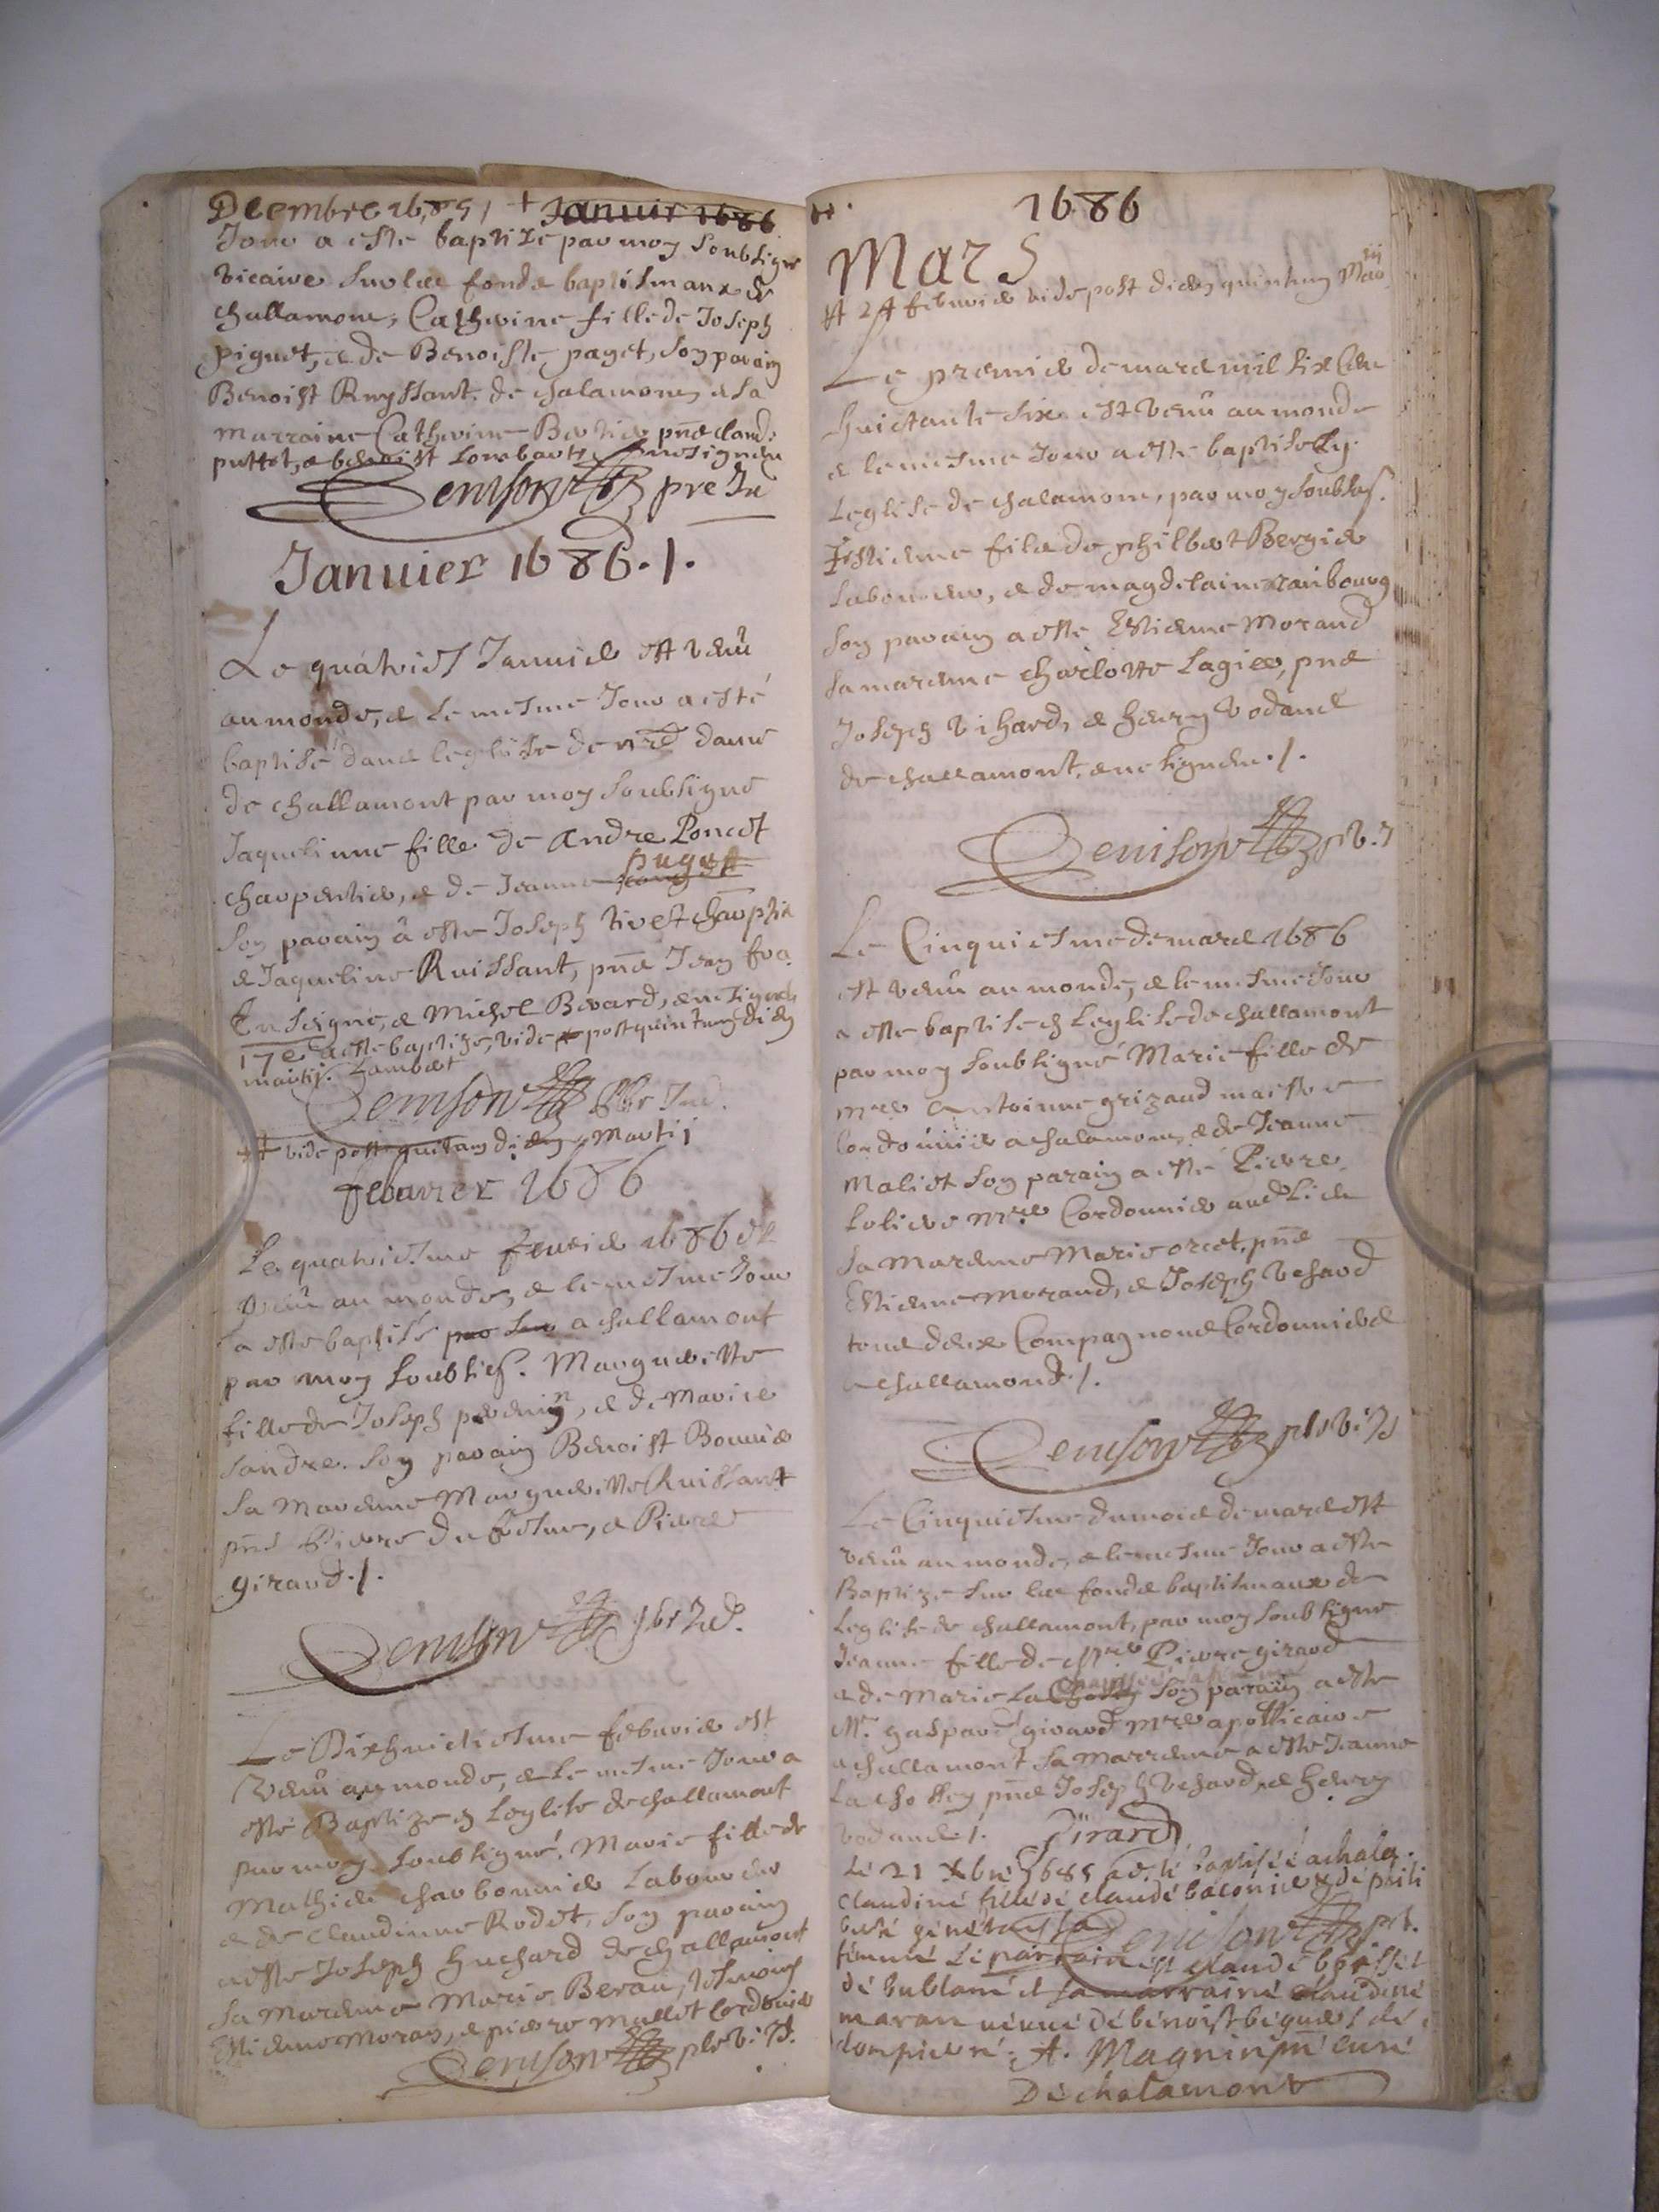 Decembre 1685 / + Januir 1686
Jour a este baptizé par moy soubsigne
vicaire sur les fonds baptismaux de
challamont, Catherine fille de Joseph
piguet, & de Benoiste paget, son parain
Benoist Ruyssant, de chalamont, & sa
marraine Catherine Bertier pnts claude
puttet, & benoist Lombart, non signés
Denison pre In
Januier 1686 . / .
Le quatries Januier est venu
au monde, & le mesme Jour a esté
baptisé dans leglise de nre dame
de challamont par moy soubsigne
Jaquelinne fille de Andre Poncet
charpentier, & de Jeanne puget
son parain a este Joseph tivest charptie
& Jaqueline Ruissant, pnts Jean fra.
En seigne, & Michel Berard, & ne signés
17e a este baptizé, vide post quintum diem
martij. Lambert
Denison
vide post quitam diem Martij
febvrier 1686
Le quatriesme feuvrier 1686 est
venu au monde, & le mesme Jour
a este baptisé a challamont
par moy soubsig. Margueritte
fille de Joseph perenin, & de Marie
sandre. son parain Benoist Bonnier
sa marenne Marguerite Ruissant
pnts Pierre du , & Pierre
girard . / .
Denison pbr
Le Dixhuictiesme febvrier est
venu au monde, & le mesme Jour a
esté Baptize en Leglise de challamont
par moy soubsigné, Marie fille de
Mathieu charbonnier Laboureur
& de Claudinne Rodet, son parain
a este Joseph huchard de challamont
sa marenne Marie Berau, tesmoins
Estienne Moran, & pierre mallet cordonnier
Denison
1686
Mars
# 24 febvrier vide post diem quintum Martij
Le premier de mars mil six Cens
huictante six est venu au monde
& le mesme Jour a este baptisé en
Leglise de chalamont, par moy soubsig.
Estienne fils de philbert Bergier
Laboureur, & de magdelaine raubourg
son parain a este Estienne Morand
sa marenne charlotte Lagier, pnts
Joseph vihard, & henry vodane
de challamont, & ne signés . / .
Denison
Le Cinquiesme de mars 1686
est venu au monde, & le mesme Jour
a este baptisé en Leglise de challamont
par moy soubsigné Marie fille de
mre Antoinne grizaud maistre
Cordonnier a chalamont, & de Jeanne
Maliet son parain a esté Pierre
Loliere mre Cordonnier aud lieu
sa marenne Marie orcet, pnts
Estienne Morand, & Joseph vehard
tous deux Compagnons Cordonniers
a challamond . / .
Denison
Le Cinquiesme du mois de mars est
venu au monde, & le mesme Jour a este
Baptizé sur les fonds baptismaux de
Leglise de challamont, par moy soubsigne
Jeanne fille de Mre Pierre girard
& de Marie La son parain a este
Mr. gaspard girard mre apotticaire
a challamont sa marrenne a este Jeanne
La pnts Joseph vehard, & henry
vodane / . Girard
Lé 21 Xbre 1685 a esté baptisée a chala.
claudiné fillé dé claudé baconier & dé phili
berté génétan sa Denison
fémmé Lé parrain est claudé bossel
dé bublané et la marrainé claudiné
maran véuué dé bénoist béguet dé
dompierré. A. Magnin curé
Dé chalamont